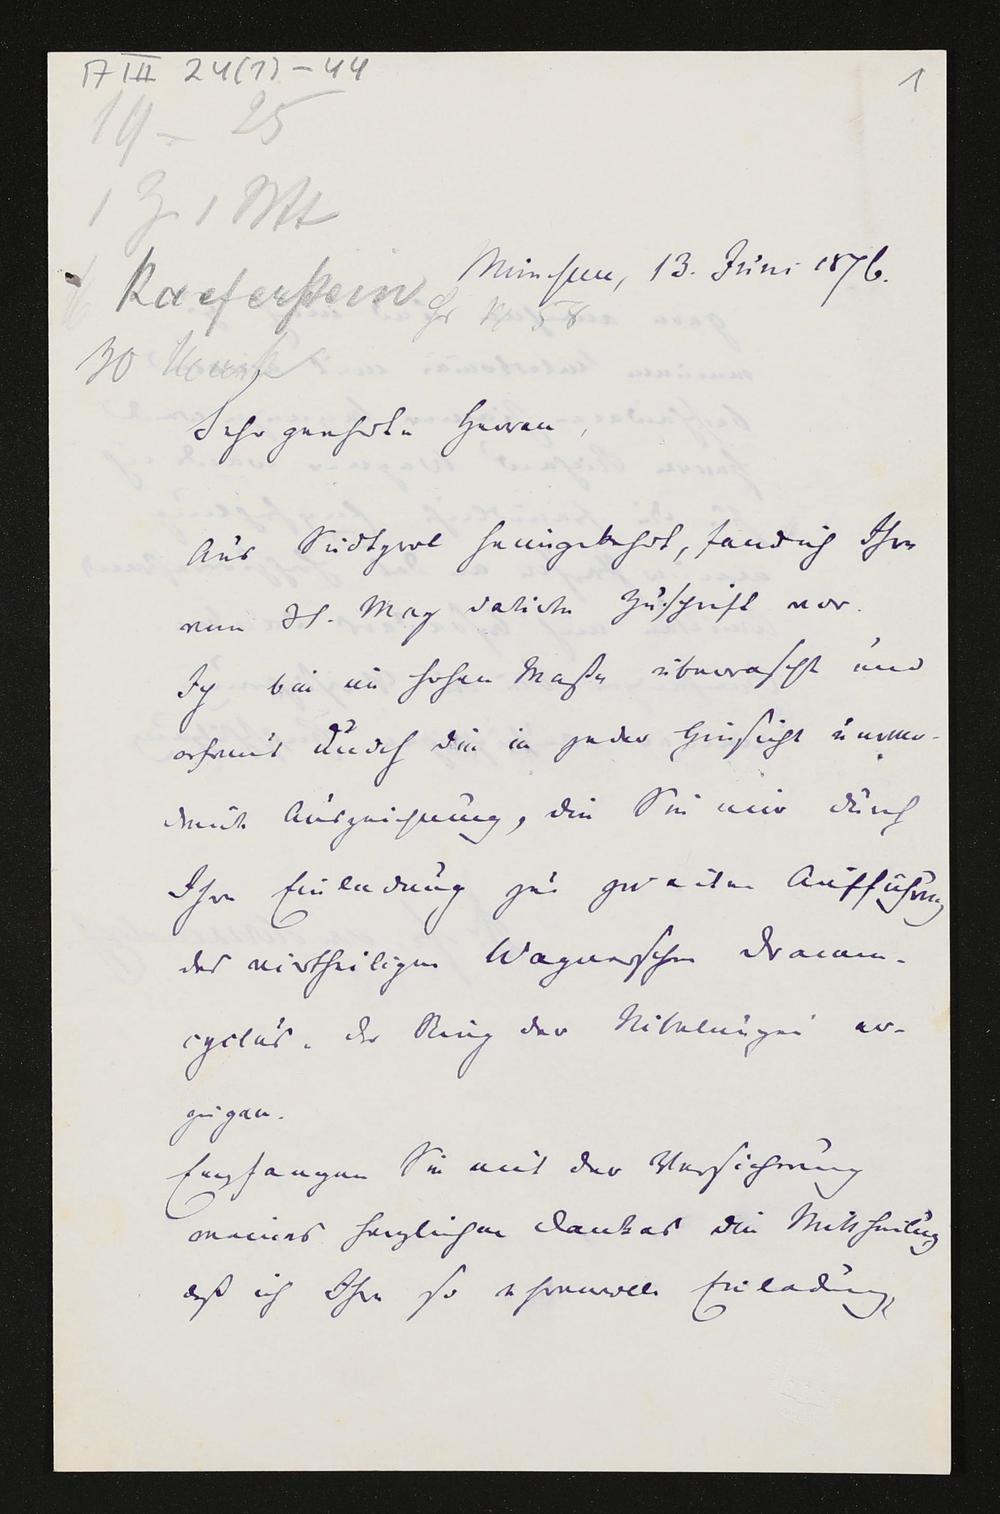 A III 24(1)-44
1
19 - 25
München, 13. Juni 1876.
Kaeferstein
30
Sehr geehrte Herren,
Aus Südtyrol heimgekehrt, fand ich Ihre
vom 31. May datirte Zuschrift vor.
Ich bin in hohem Maße überrascht und
erfreut durch die in jeder Hinsicht unver-
diente Auszeichnung, die Sie mir durch
Ihre Einladung zur zweiten Aufführung
des viertheiligen Wagnerschen Dramen-
cyclus: der Ring der Nibelungen er-
zeigen.
Empfangen Sie mit der Versicherung
meines herzlichen Dankes die Mittheilung
daß ich Ihre so ehrenvolle Einladung,